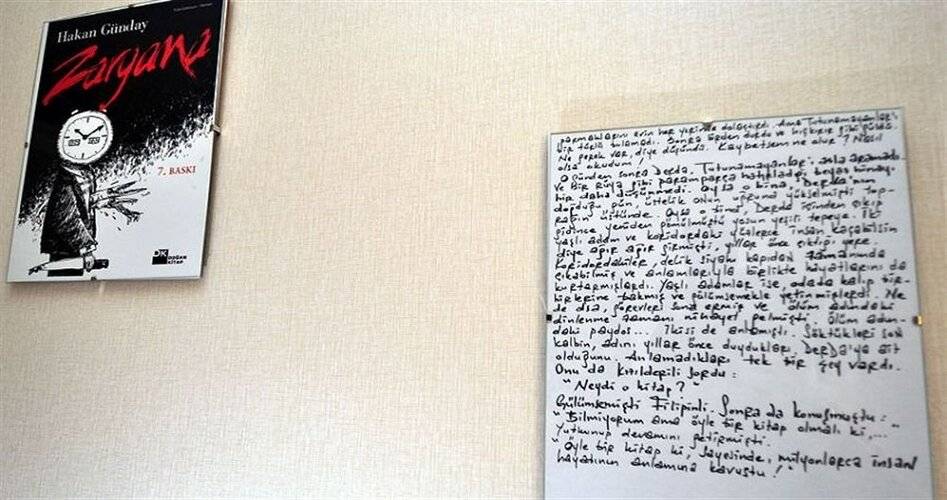 Hakan Günday
Zargana
7. BASKI
DK
DOĞAN
KİTAP
parmaklarını evin her yerinde dolaştırdı. Ama Tutunamayanlar'ı
bir türlü bulamadı. Sonra birden durdu ve hıçkırır gibi güldü.
Ne gerek var, diye düşündü. Kaybetsem ne olur? Nasıl
olsa okudum!
O günden sonra Derda, Tutunamayanlar'ı anla aramadı
ve bir rüya gibi paramparça hatırladığı beyaz binayı
bir daha düşünmedi. Oysa o bina, Derda'nın
doğduğu gün, üstelik onun uğruna yükselmişti top-
rağın üstünde. Oysa o bina, Derda içinden çıkıp
gidince yeniden gömülmüştü yosun yeşili tepeye. İki
yaşlı adam ve koridordaki yüzlerce insan kaçabilsin
diye ağır ağır girmişti, yıllar önce çıktığı yere.
Koridordakiler, delik siyah kapıdan zamanında
çıkabilmiş ve anlamlarıyla birlikte hayatlarını da
kurtarmışlardı. Yaşlı adamlar ise, odada kalıp bir-
birlerine bakmış ve gülümsemekle yetinmişlerdi. Ne
de olsa, görevleri sona ermiş ve ölüm adındaki
dinlenme zamanı nihayet gelmişti. Ölüm adın-
daki paydos... İkisi de anlamıştı. Söktükleri son
kalbin, adını yıllar önce duydukları, Derda'ya ait
olduğunu. Anlamadıkları tek bir şey vardı.
Onu da Kızılderili sordu:
"Neydi o kitap?"
Gülümsemişti Filipinli. Sonra da konuşmuştu:
"Bilmiyorum ama öyle bir kitap olmalı ki,..."
Yutkunup devamını getirmişti.
"Öyle bir kitap ki, sayesinde, milyonlarca insan
hayatının anlamına kavuştu!"